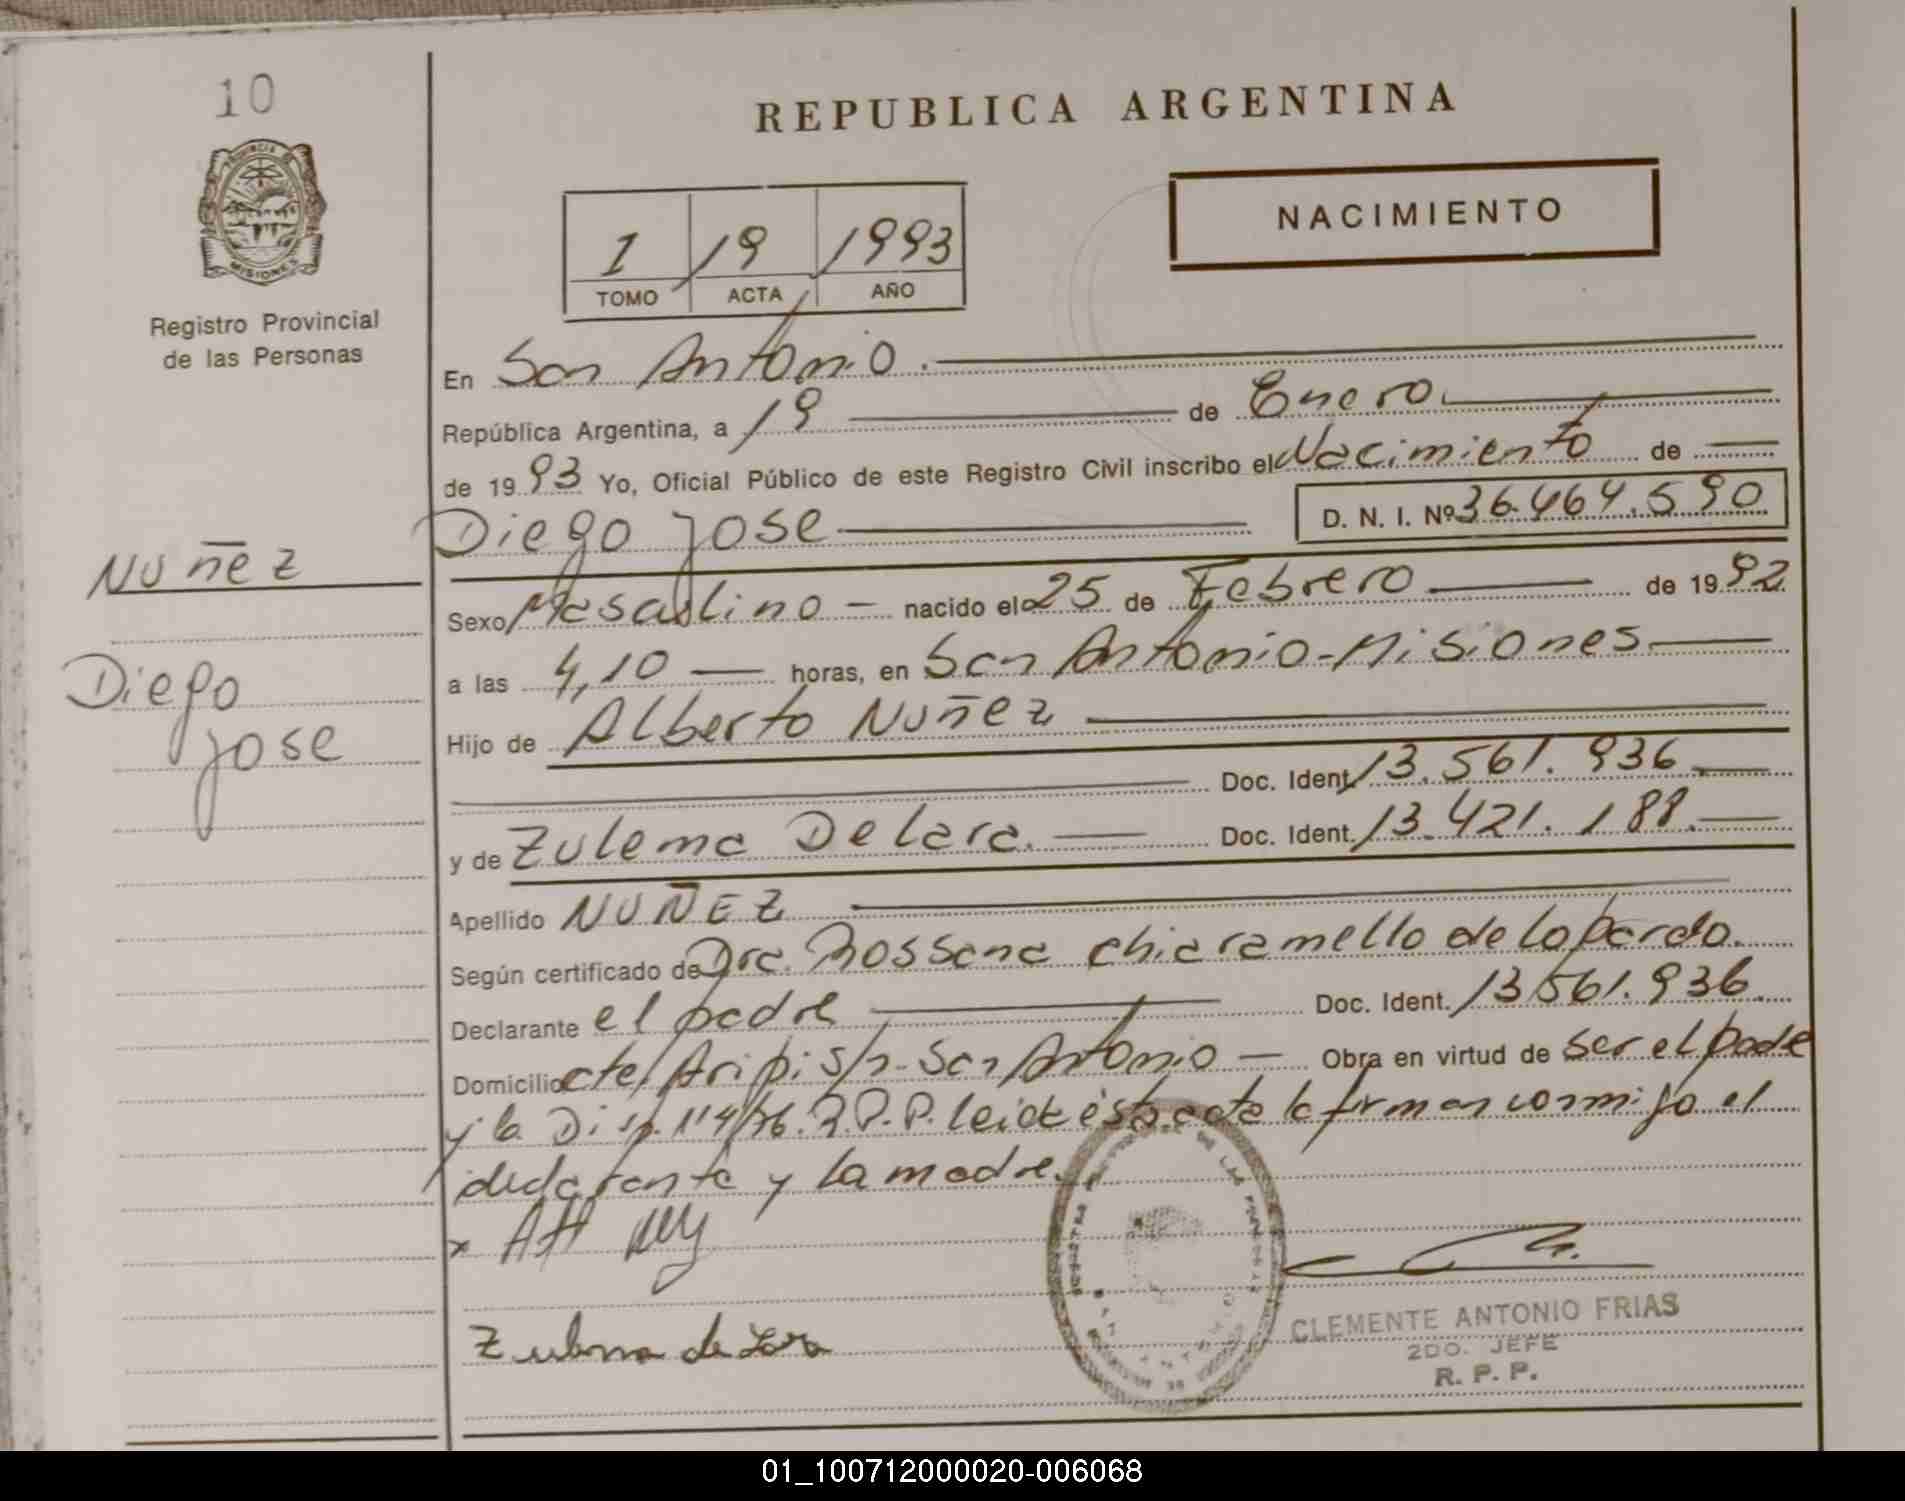 10
REPUBLICA ARGENTINA
NACIMIENTO
PROVINCIA DE
MISIONES
1 19 1993
TOMO ACTA AÑO
Registro Provincial
de las Personas
En San Antonio.
República Argentina, a 19 de Enero.
de 1993 Yo, Oficial Público de este Registro Civil inscribo el Nacimiento de
Diego Jose D. N. I. Nº 36.464.590
Nuñez
Diego
Jose
Sexo Masculino nacido el 25 de Febrero de 1992
a las 4,10 horas, en San Antonio-Misiones
Hijo de Alberto Nuñez
Doc. Ident. 13.561.936
y de Zulema De Lara. Doc. Ident. 13.421.188.
Apellido NUÑEZ
Según certificado de Dra. Rossana Chiaramello de Lopardo.
Declarante el padre Doc. Ident. 13.561.936
Domicilio cte/Aripi s/n-San Antonio Obra en virtud de ser el padre
y la Disp. 114/76.R.P.P. leida ésta acta la firman conmigo el
declarante y la madre.
x
Zulema de Lara
CLEMENTE ANTONIO FRIAS
2DO. JEFE
R. P. P.
01_100712000020-006068